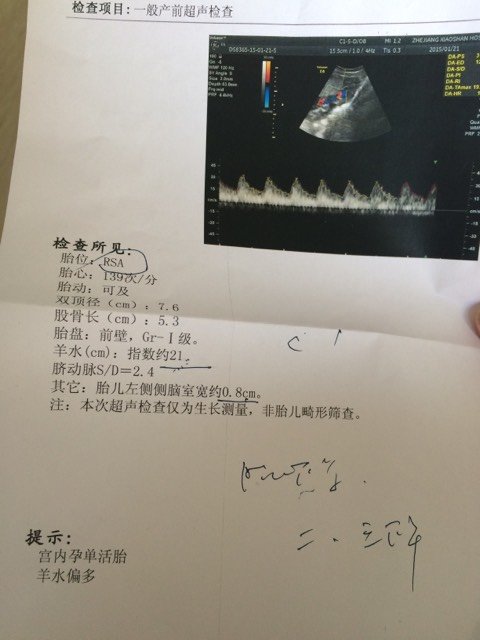 检查项目：一般产前超声检查
C1-5-D/OB MI 1.2 ZHEJIANG XIAOSHAN HOS
DS8365-15-01-21-5 15.5cm / 1.0 / 4Hz TIs 0.3 2015/01/21
检查所见：
胎位：RSA
胎心：139次/分
胎动：可及
双顶径（cm）：7.6
股骨长（cm）：5.3
胎盘：前壁，Gr-Ⅰ级。
羊水(cm)：指数约21.
脐动脉S/D=2.4
其它：胎儿左侧侧脑室宽约0.8cm。
注：本次超声检查仅为生长测量，非胎儿畸形筛查。
提示：
宫内孕单活胎
羊水偏多